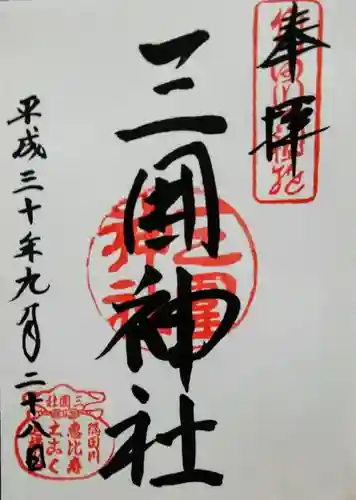 奉拝
三囲神社
平成三十年九月二十八日
三囲神社
三囲社
隅田川
恵比寿
大こく